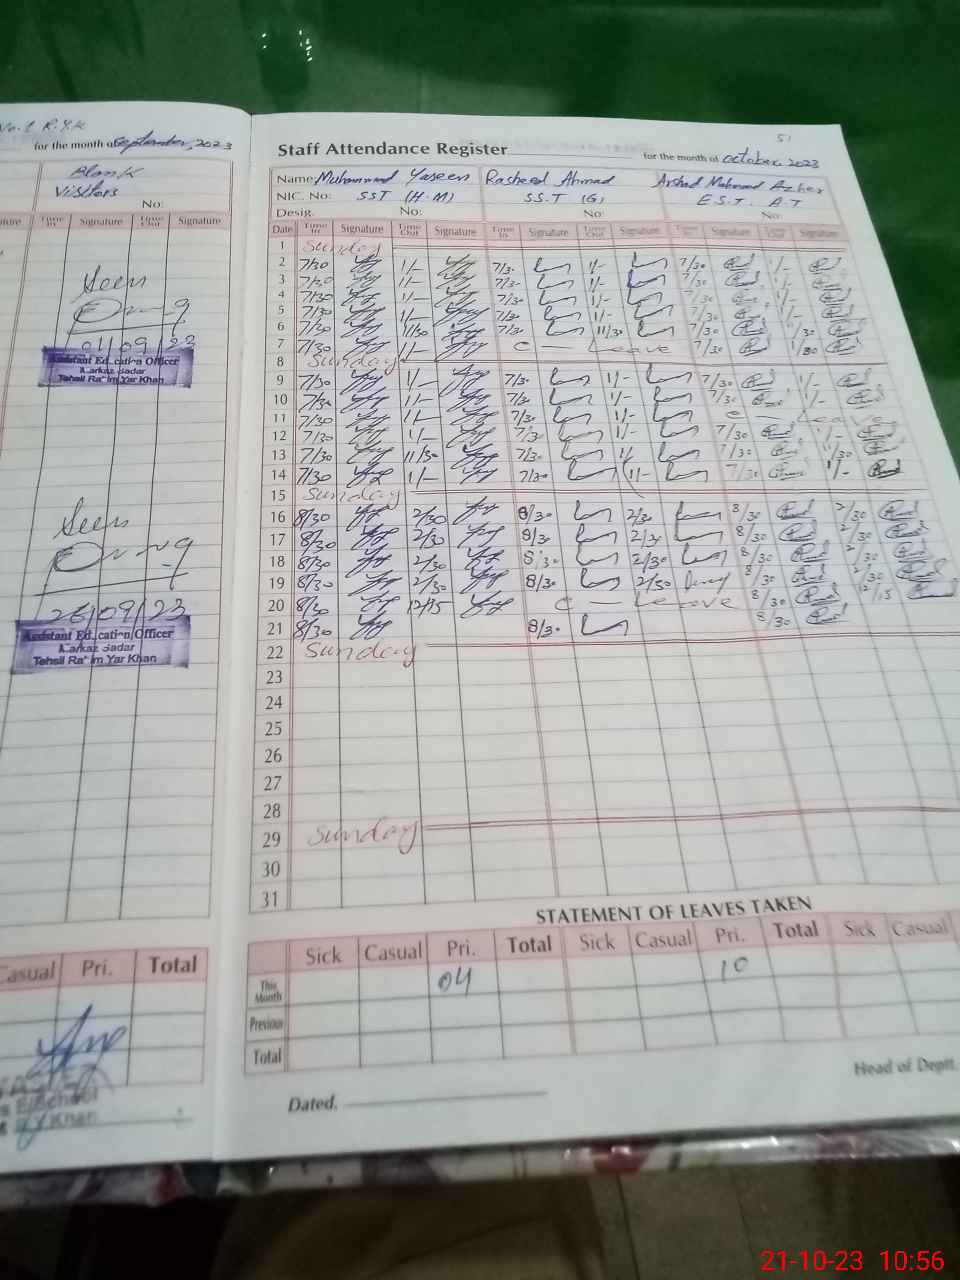 No.1 R.Y.K
for the month of September, 2023
Blank
Visitors
No:
Time In Signature Time Out Signature
Seen
01/09/23
Assistant Education Officer
Markaz Sadar
Tehsil Rahim Yar Khan
Seen
26/09/23
Assistant Education Officer
Markaz Sadar
Tehsil Rahim Yar Khan
Casual Pri. Total
51
Staff Attendance Register for the month of October, 2023
Name: Muhammad Yaseen Rasheed Ahmad Arshad Mahmood Azher
NIC. No: SST (H.M) S.S.T (G) E.S.T. A.T
Desig. No: No: No:
Date Time In Signature Time Out Signature Time In Signature Time Out Signature Time In Signature Time Out Signature
1 Sunday
2 7/30 1/- 7/30 1/- 7/30 1/-
3 7/30 1/- 7/30 1/- 7/30 1/-
4 7/30 1/- 7/30 1/- 7/30 1/-
5 7/30 1/- 7/30 1/- 7/30 1/-
6 7/30 11/30 7/30 11/30 7/30 /30
7 7/30 1/- C — Leave 7/30 1/30
8 Sunday
9 7/30 1/- 7/30 1/- 7/30 1/-
10 7/30 1/- 7/30 1/- 7/30 1/-
11 7/30 1/- 7/30 1/- C — Leave
12 7/30 1/- 7/30 1/- 7/30 1/-
13 7/30 11/30 7/30 7/30 11/30
14 7/30 1/- 7/30 1/- 7/30 1/-
15 Sunday
16 8/30 2/30 8/30 2/30 8/30 2/30
17 8/30 2/30 8/30 2/30 8/30 2/30
18 8/30 2/30 8/30 2/30 8/30 2/30
19 8/30 2/30 8/30 2/30 8/30 2/30
20 8/30 12/15 C — Leave 8/30 12/15
21 8/30 8/30 8/30
22 Sunday
23
24
25
26
27
28
29 Sunday
30
31
STATEMENT OF LEAVES TAKEN
Sick Casual Pri. Total Sick Casual Pri. Total Sick Casual
This Month 04 10
Previous
Total
Dated. Head of Deptt.
21-10-23 10:56